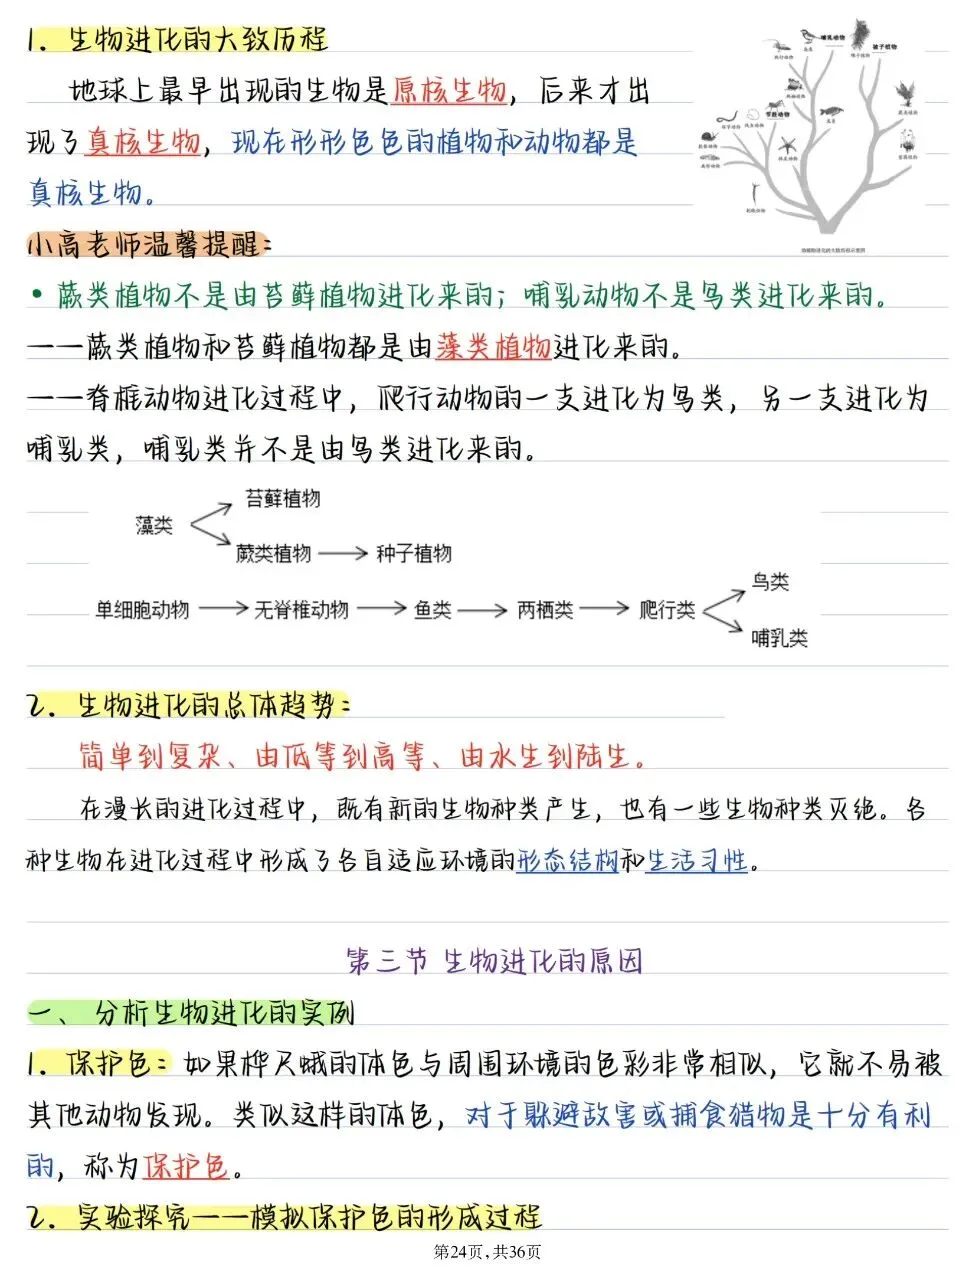 1. 生物进化的大致历程
地球上最早出现的生物是原核生物，后来才出
现了真核生物，现在形形色色的植物和动物都是
真核生物。
哺乳动物
被子植物
节肢动物
动植物进化的大致历程示意图
小高老师温馨提醒：
• 蕨类植物不是由苔藓植物进化来的；哺乳动物不是鸟类进化来的。
——蕨类植物和苔藓植物都是由藻类植物进化来的。
——脊椎动物进化过程中，爬行动物的一支进化为鸟类，另一支进化为
哺乳类，哺乳类并不是由鸟类进化来的。
苔藓植物
藻类
蕨类植物 种子植物
鸟类
单细胞动物 无脊椎动物 鱼类 两栖类 爬行类
哺乳类
2. 生物进化的总体趋势：
简单到复杂、由低等到高等、由水生到陆生。
在漫长的进化过程中，既有新的生物种类产生，也有一些生物种类灭绝。各
种生物在进化过程中形成了各自适应环境的形态结构和生活习性。
第三节 生物进化的原因
一、 分析生物进化的实例
1. 保护色：如果桦尺蛾的体色与周围环境的色彩非常相似，它就不易被
其他动物发现。类似这样的体色，对于躲避敌害或捕食猎物是十分有利
的，称为保护色。
2. 实验探究——模拟保护色的形成过程
第24页，共36页